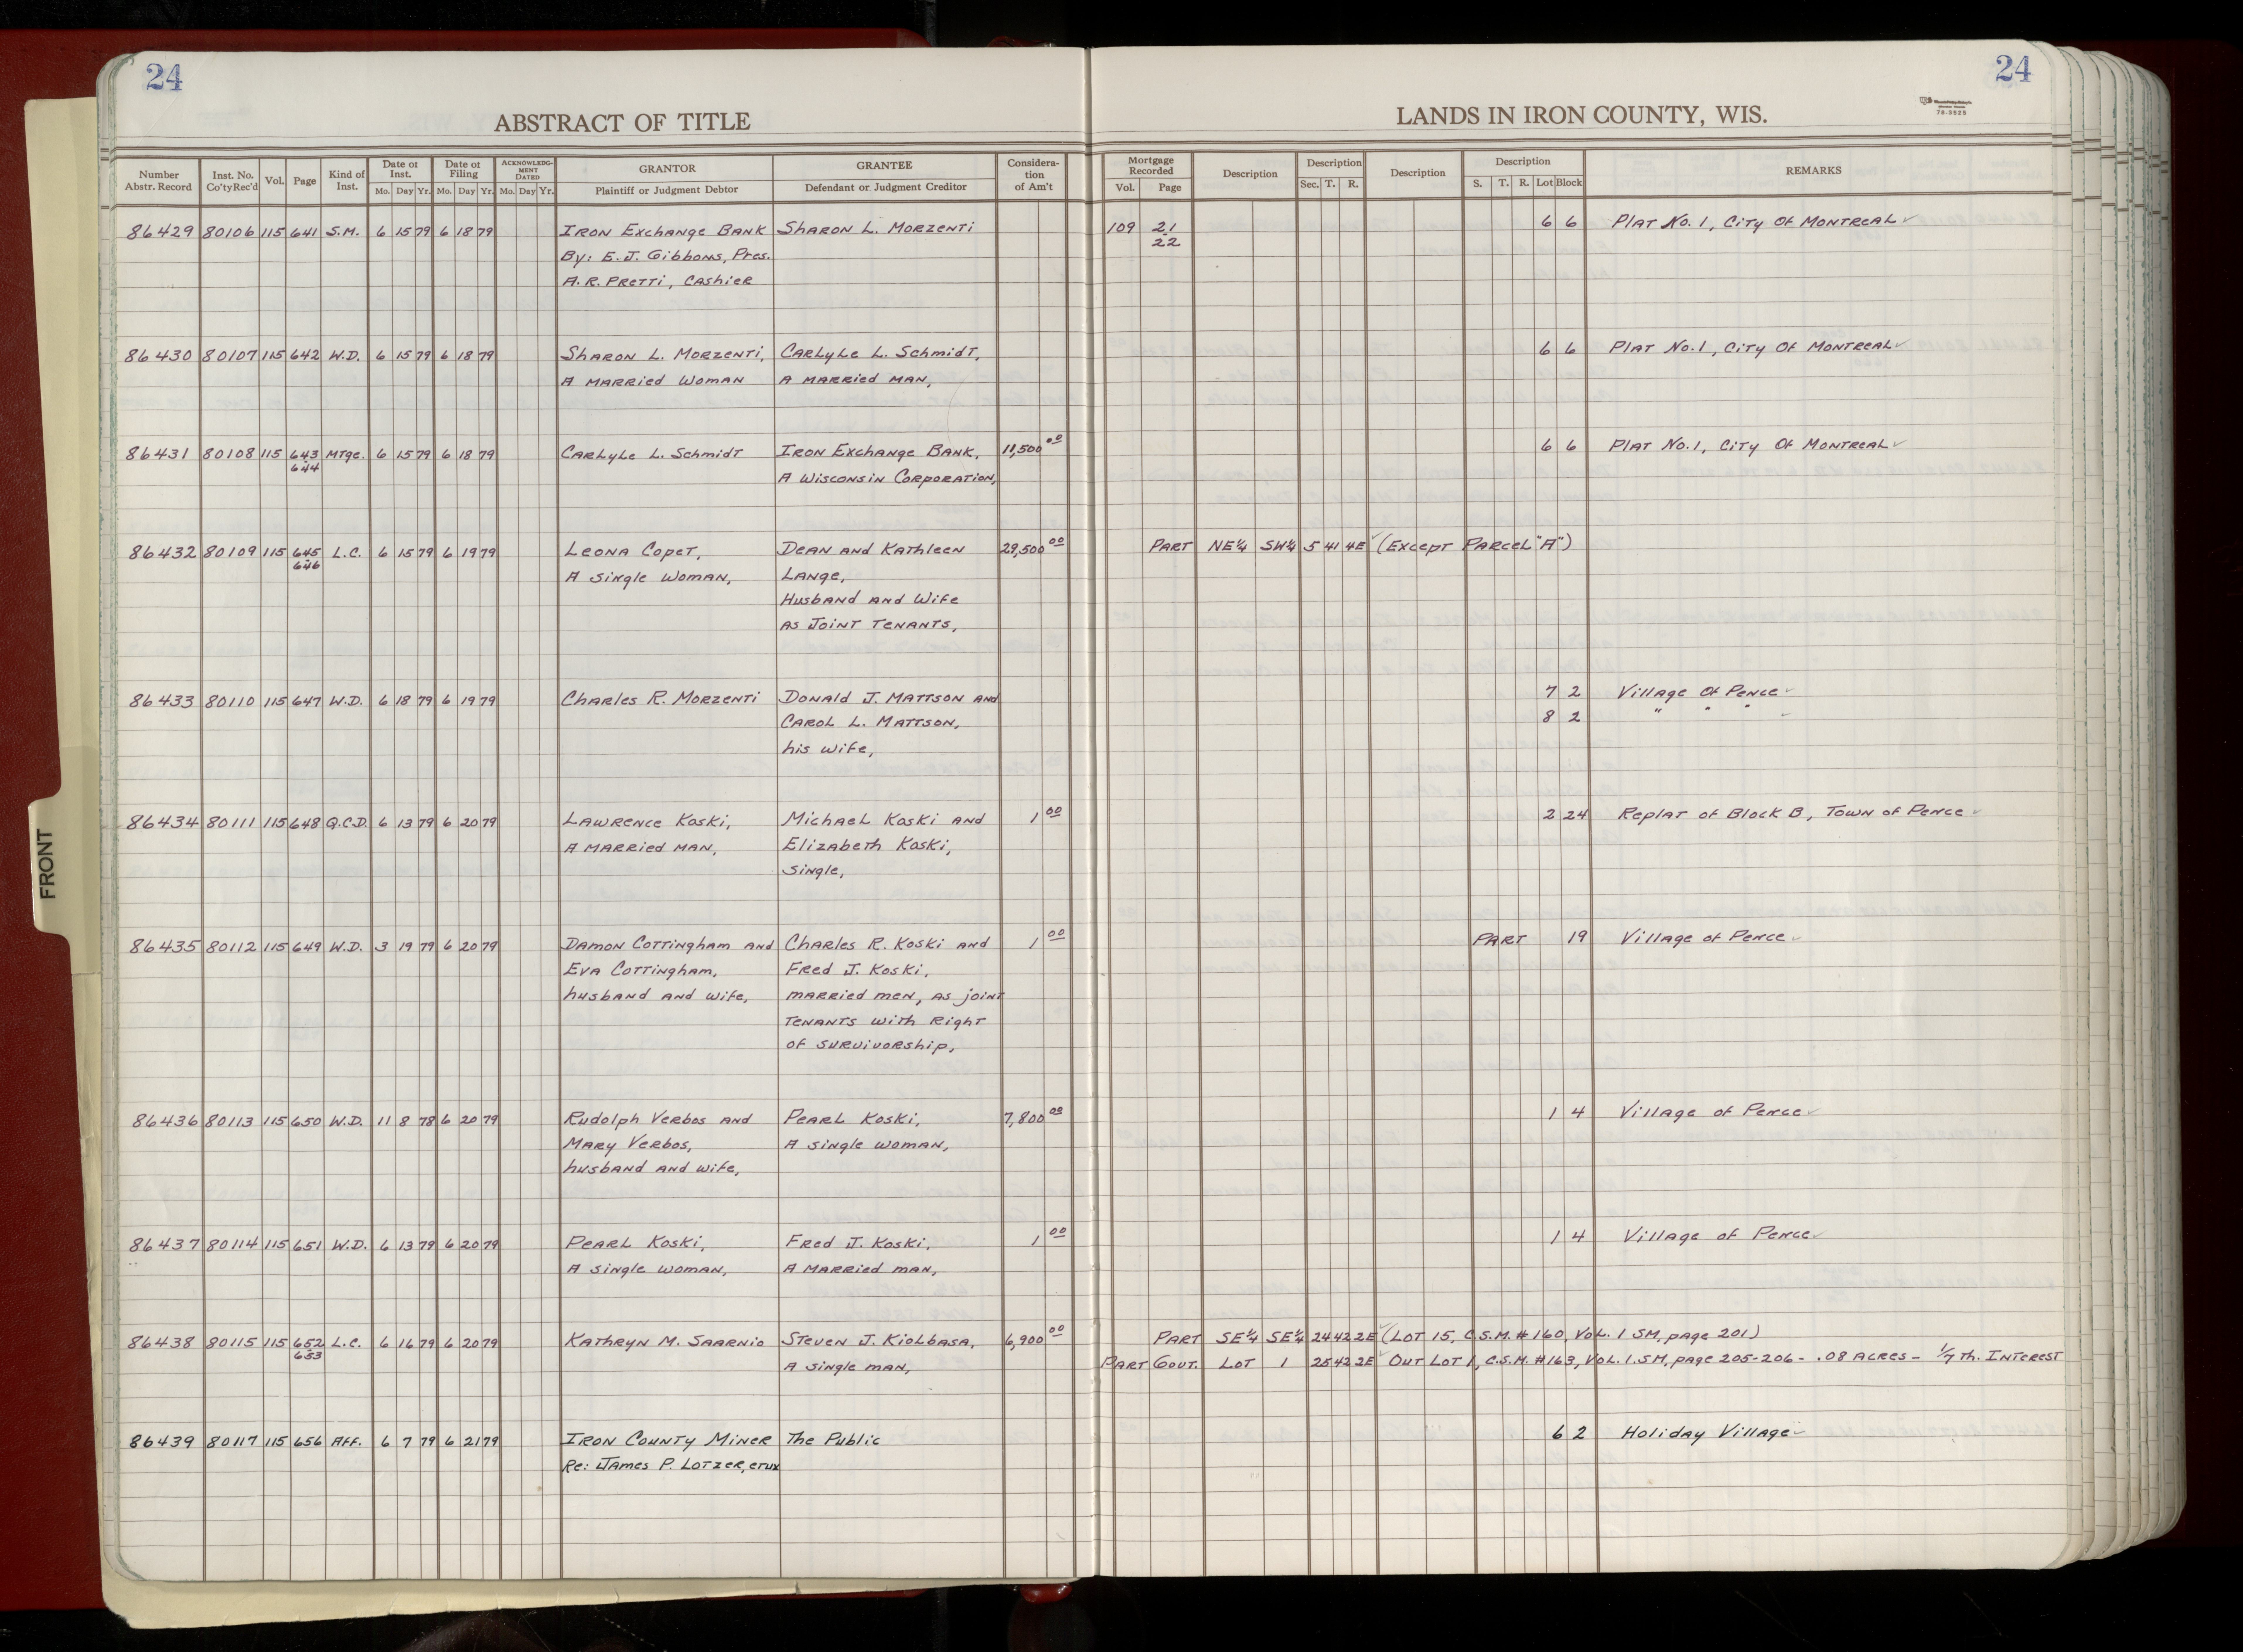 24
24
ABSTRACT OF TITLE
LANDS IN IRON COUNTY, WIS.
70-3525
Number Abstr. Record | Inst. No. Co'ty Rec'd | Vol. | Page | Kind of Inst. | Date of Inst. Mo. Day Yr. | Date of Filing Mo. Day Yr. | ACKNOWLEDGMENT DATED Mo. Day Yr. | GRANTOR Plaintiff or Judgment Debtor | GRANTEE Defendant or Judgment Creditor | Consideration of Am't | Mortgage Recorded Vol. Page | Description | Description Sec. T. R. | Description | Description S. T. R. Lot Block | REMARKS
86429 80106 115 641 S.M. 6 15 79 6 18 79 IRON Exchange BANK SHARON L. MORZENTI 109 21 6 6 PLAT No. 1, City Of MONTREAL
By: E.J. Gibbons, Pres. 22
A.R. PRETTI, CASHIER
86430 80107 115 642 W.D. 6 15 79 6 18 79 SHARON L. MORZENTI, CARLYLE L. Schmidt, 6 6 PLAT No. 1, City Of MONTREAL
A MARRIED WOMAN A MARRIED MAN,
86431 80108 115 643 MTge. 6 15 79 6 18 79 CARLYLE L. Schmidt IRON Exchange BANK, 11,500 00 6 6 PLAT No. 1, City Of MONTREAL
644 A WISCONSIN CORPORATION,
86432 80109 115 645 L.C. 6 15 79 6 19 79 LEONA COPET, DEAN AND KATHLEEN 29,500 00 PART NE¼ SW¼ 5 41 4E (EXCEPT PARCEL "A")
646 A SINGLE WOMAN, LANGE,
HUSBAND AND WIFE
AS JOINT TENANTS,
86433 80110 115 647 W.D. 6 18 79 6 19 79 CHARLES R. MORZENTI DONALD J. MATTSON AND 7 2 Village Of Pence
CAROL L. MATTSON, 8 2 " " "
his wife,
86434 80111 115 648 Q.C.D. 6 13 79 6 20 79 LAWRENCE KOSKI, MICHAEL KOSKI AND 1 00 2 24 Replat of Block B, Town of Pence
A MARRIED MAN, ELIZABETH KOSKI,
SINGLE,
86435 80112 115 649 W.D. 3 19 79 6 20 79 DAMON COTTINGHAM AND CHARLES R. KOSKI AND 1 00 PART 19 Village of Pence
EVA COTTINGHAM, FRED J. KOSKI,
husband AND wife, MARRIED MEN, AS JOINT
TENANTS WITH RIGHT
OF SURVIVORSHIP,
86436 80113 115 650 W.D. 11 8 78 6 20 79 RUDOLPH VERBOS AND PEARL KOSKI, 7,800 00 1 4 Village of Pence
MARY VERBOS, A SINGLE WOMAN,
husband AND wife,
86437 80114 115 651 W.D. 6 13 79 6 20 79 PEARL KOSKI, FRED J. KOSKI, 1 00 1 4 Village of Pence
A SINGLE WOMAN, A MARRIED MAN,
86438 80115 115 652 L.C. 6 16 79 6 20 79 KATHRYN M. SAARNIO STEVEN J. KIOLBASA, 6,900 00 PART SE¼ SE¼ 24 42 2E (LOT 15, C.S.M. #160, VOL. 1 SM, page 201)
653 A SINGLE MAN, PART GOVT. LOT 1 25 42 2E OUT LOT 1, C.S.M. #163, VOL. 1. SM, page 205-206 - .08 ACRES - 1/7 th. INTEREST
86439 80117 115 656 AFF. 6 7 79 6 21 79 IRON COUNTY MINER The Public 6 2 Holiday Village
Re: JAMES P. LOTZER, etux
FRONT